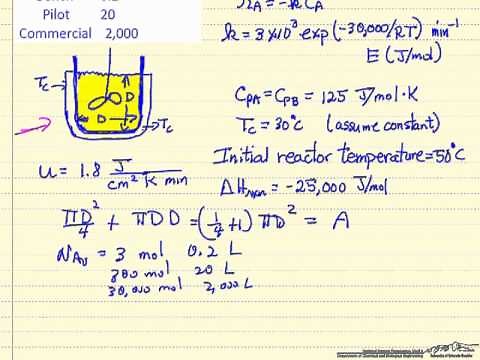 Pilot 20
Commercial 2,000
r_A = -k C_A
k = 3 x 10³ exp(-30,000/RT) min⁻¹
E (J/mol)
T_c
D
D
T_c
C_PA = C_PB = 125 J/mol·K
T_c = 30°C (assume constant)
Initial reactor temperature = 50°C
ΔH_rxn = -25,000 J/mol
U = 1.8 J / cm² K min
πD²/4 + πDD = (1/4 + 1) πD² = A
N_A0 = 3 mol 0.2 L
300 mol 20 L
30,000 mol 2,000 L